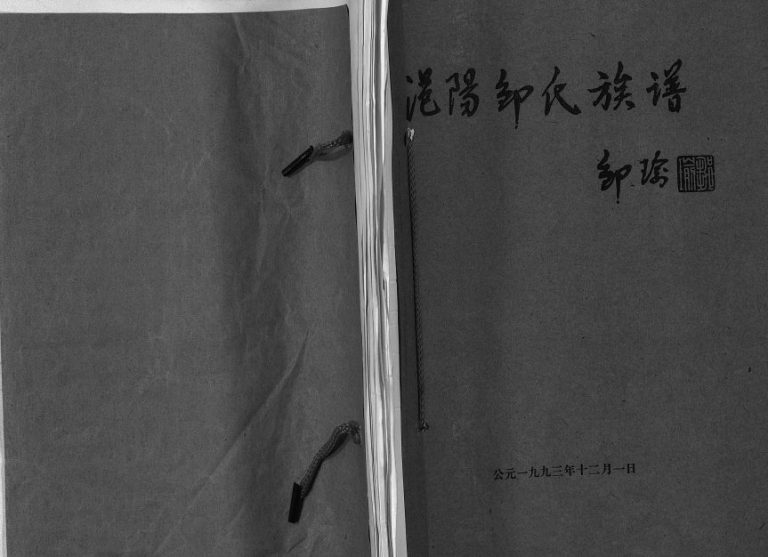 浥陽邹氏族谱
邹瑜
公元一九九三年十二月一日